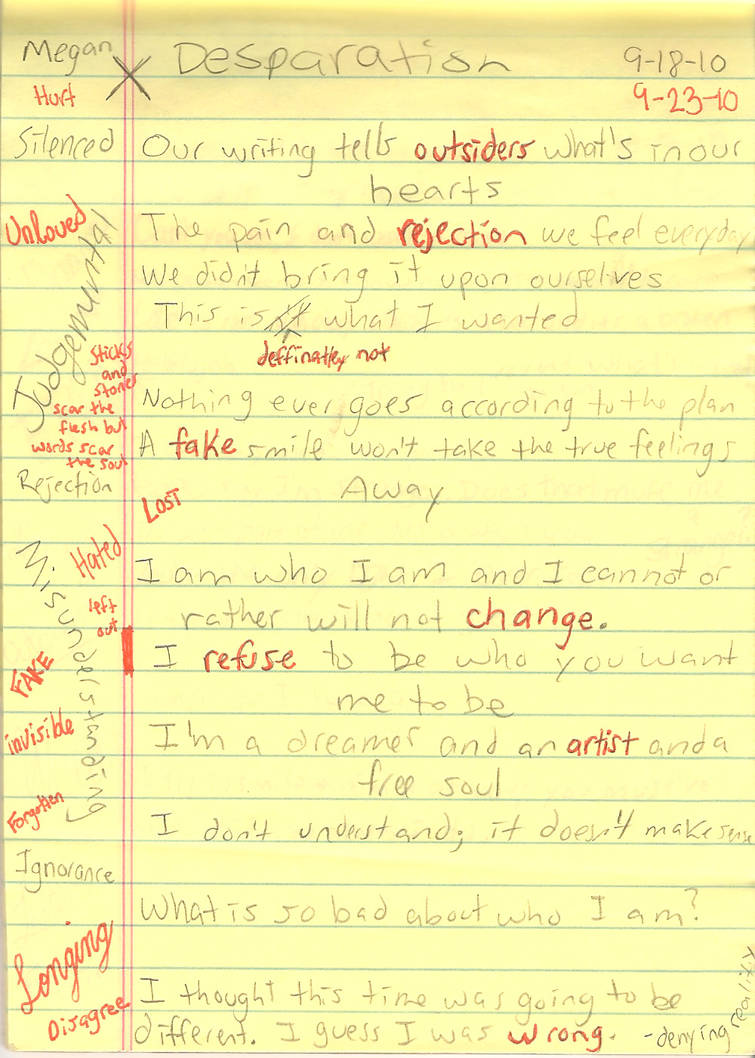 Megan
X Desparation
9-18-10
Hurt
9-23-10
Silenced
Our writing tells outsiders what's in our
hearts
Unloved
The pain and rejection we feel everyday
Judgemental
We didn't bring it upon ourselves
This isn't what I wanted
deffinatley not
sticks
and
stones
scar the
flesh but
words scar
the soul
Nothing ever goes according to the plan
A fake smile won't take the true feelings
Away
Rejection
LOST
Hated
Misunderstanding
I am who I am and I cannot or
rather will not change.
left
out
I refuse to be who you want
me to be
FAKE
invisible
I'm a dreamer and an artist and a
free soul
Forgotten
I don't understand; it doesn't make sense
Ignorance
What is so bad about who I am?
Longing
Disagree
I thought this time was going to be
different. I guess I was wrong.
-denying reality